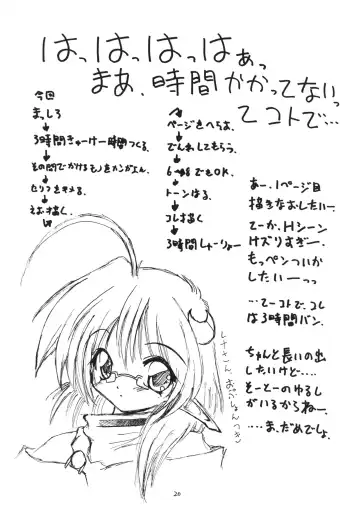 はっはっはっはぁっ
まあ、時間かかってないっ
てコトで…
今回
まっしろ
↓
3時間きゅーけー時間つくる。
↓
その間でかけるモノをカンがえん。
↓
セリフをキメる。
↓
えお描く。
ページをへらす。
↓
でんわしてもらう。
↓
6→8でもOK。
↓
トーンはる。
↓
コレ描く
↓
3時間しゅーりょー
あー、1ページ目
描きなおしたいー。
てーか、Hシーン
ケズりすぎー。
もっペンついか
したいーーっ
…てコトで、コレ
は3時間バン。
ちゃんと長いの出
したいけど……
そーとーのゆるし
がいるからねー。
……ま、だめでしょ。
レナさん おぷしょんつき
20